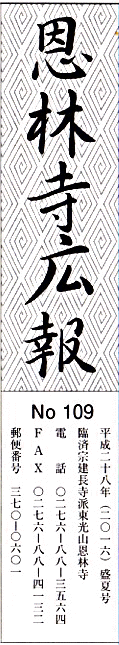 恩林寺広報
No 109
平成二十八年(二〇一六)盛夏号
臨済宗建長寺派東光山恩林寺
電話 〇二七六ー八八ー三五六四
FAX 〇二七六ー八八ー四一三二
郵便番号 三七〇ー〇六〇一